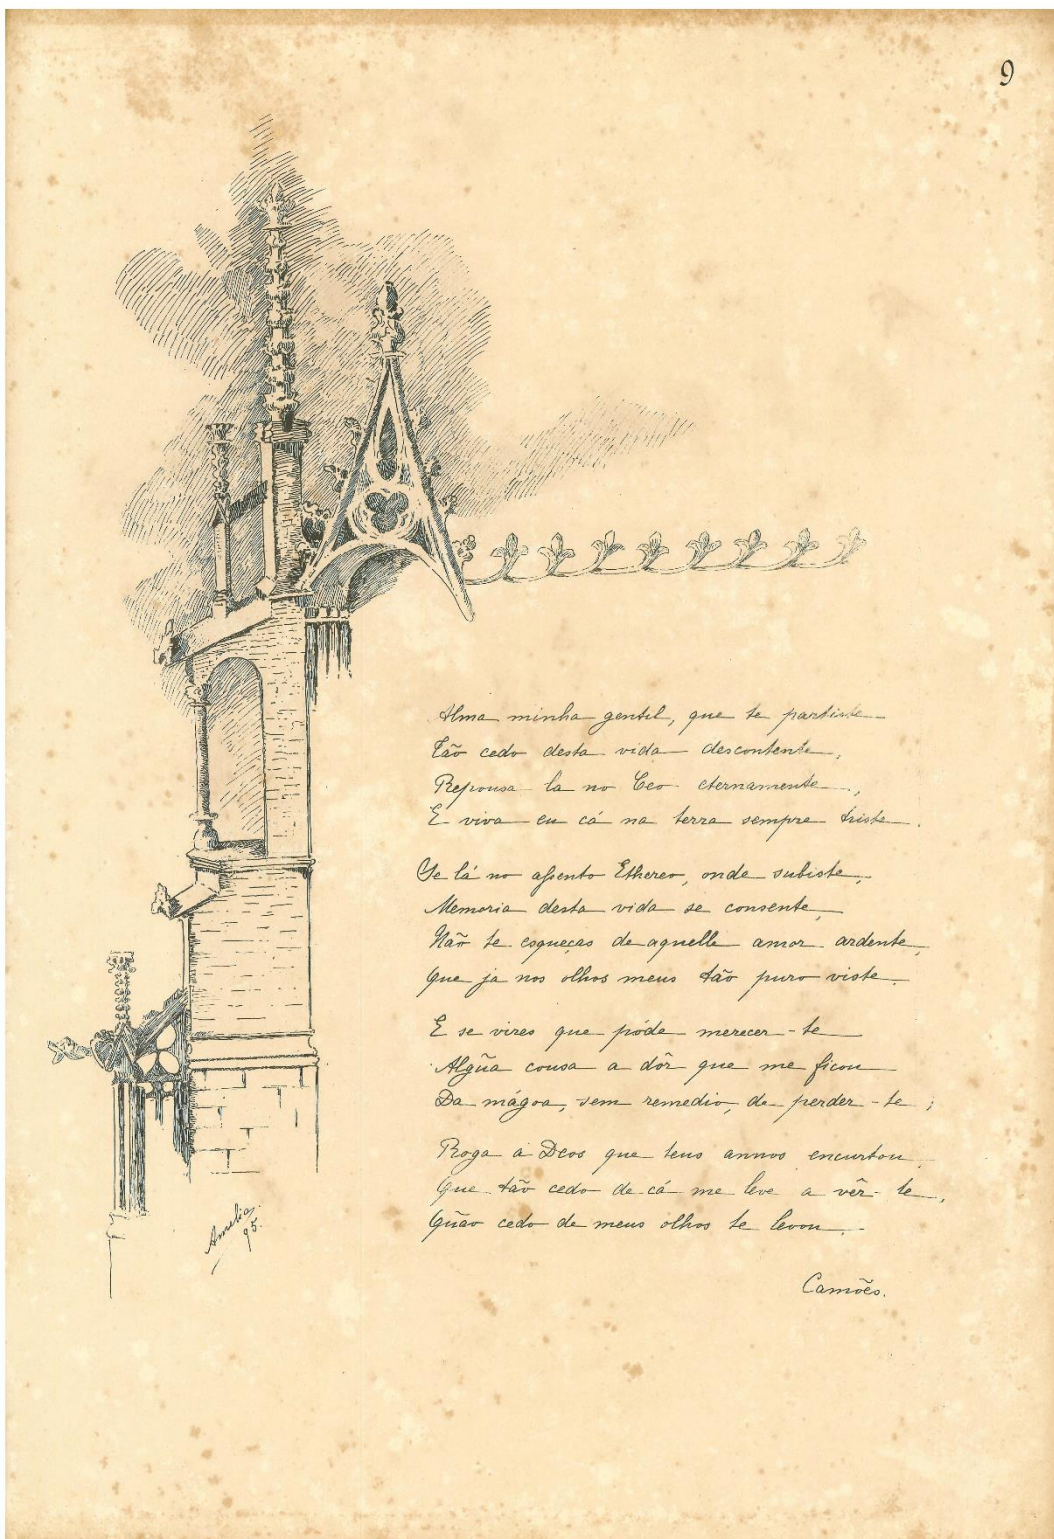 9
Alma minha gentil, que te partiste
Tão cedo desta vida descontente,
Repousa la no Ceo eternamente,
E viva eu cá na terra sempre triste.
Se lá no assento Ethereo, onde subiste,
Memoria desta vida se consente,
Não te esqueças de aquelle amor ardente,
Que ja nos olhos meus tão puro viste.
E se vires que póde merecer-te
Algũa cousa a dôr que me ficou
Da mágoa, sem remedio, de perder-te;
Roga a Deos que teus annos encurtou,
Que tão cedo de cá me leve a vêr-te,
Quão cedo de meus olhos te levou.
Camões.
Amelia
95.